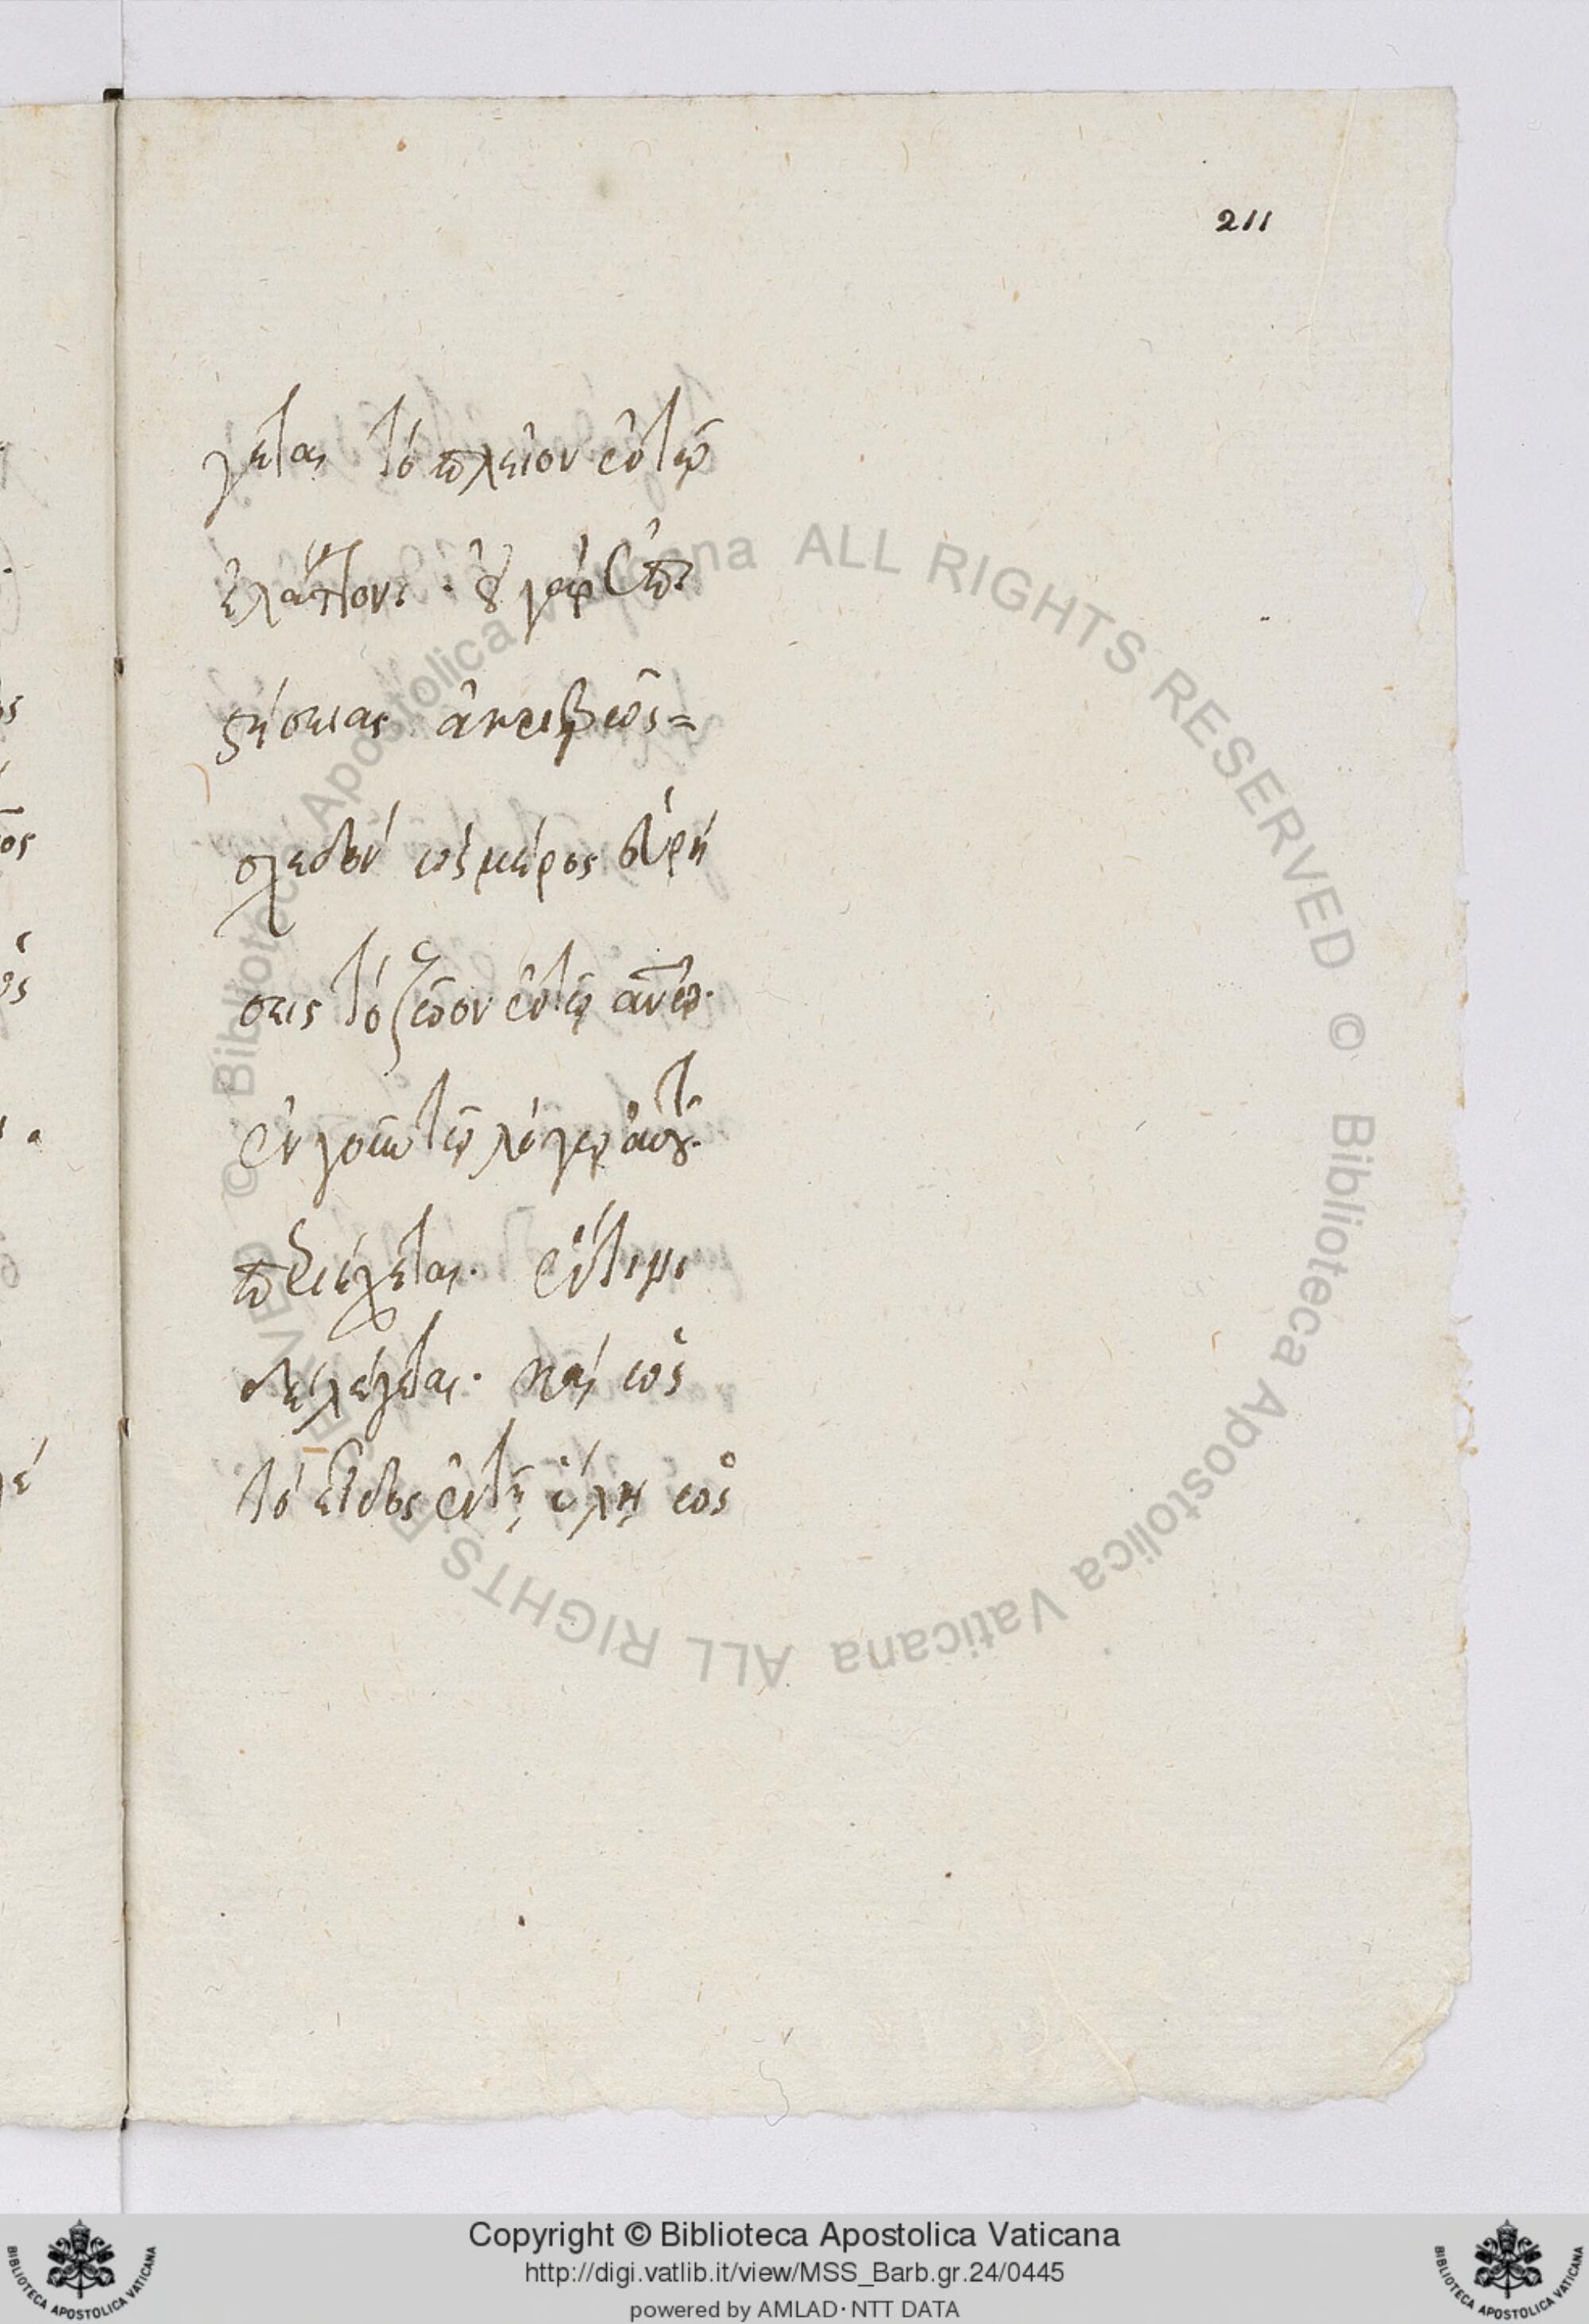 211
γεται τὸ πλεῖον ἐν τῷ
ἐλάττονι. εἰ γὰρ ἐπι
στήσειας ἀκριβῶς =
σχεδὸν ὡς μέρος εὑρή
σεις τὸ ζῷον ἐν τῷ ἀνῷ.
ἐν γοῦν τῷ λόγῳ αὐτοῦ
περιέχεται. ἔν τισι
δὲ λέγεται. καὶ ὡς
τὸ εἶδος ἐν τῇ ὕλῃ ὡς
© Biblioteca Apostolica Vaticana ALL RIGHTS RESERVED © Biblioteca Apostolica Vaticana ALL RIGHTS RESERVED
Copyright © Biblioteca Apostolica Vaticana
http://digi.vatlib.it/view/MSS_Barb.gr.24/0445
powered by AMLAD·NTT DATA
BIBLIOTECA APOSTOLICA VATICANA
BIBLIOTECA APOSTOLICA VATICANA